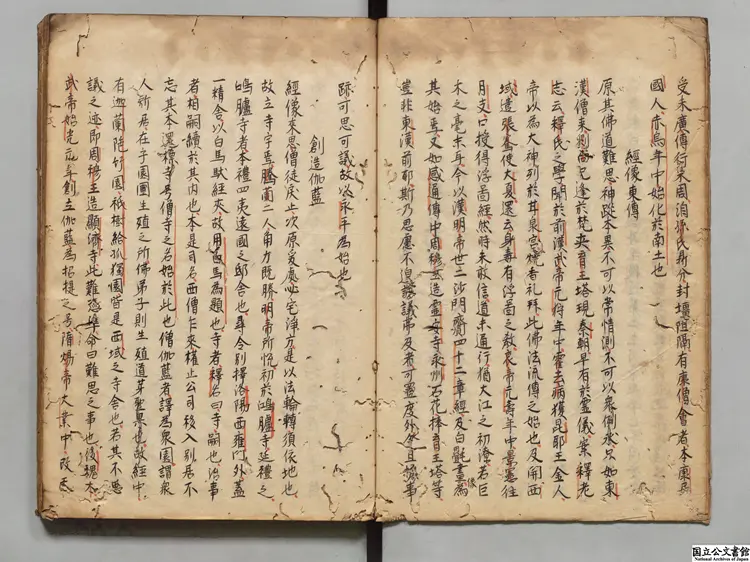 受未廣傳行来周洎孫氏鼎分封壃阻隔有康僧會者本康居
國人赤烏年中始化於南土也
經像東傳
原其佛道難思神蹤本異不可以常情測不可以衆例求只如東
漢僧来劉向已逢於梵夾育王塔現秦朝早有於靈儀案釋老
志云釋氏之學聞於前漢武帝元狩年中霍去病獲昆耶王金人
帝以為大神列於甘泉宮燒香礼拜此佛法流傳之始也及開西
域遣張騫使大夏還云身毒有浮圖之教哀帝元壽年中景憲往
月支口授得浮圖經然時未敢信道未通行猶大江之初潦若巨
木之毫末耳今以漢明帝世二沙門齎四十二章經及白㲲畫像為
其始量又如感通傳中周穆王造靈安寺永州石花捧育王塔等
豈非東漢前耶斯乃思慮不逮謗議弗及者可置度外然且據事
跡可思可議故以永平為始也
創造伽藍
經像来思僧徒戾止次原爰處必宅淨方是以法輪轉須依地也
故立寺宇焉騰蘭二人角力既勝明帝所悅初於鴻臚寺延禮之
鴻臚寺者本禮四夷遠國之邸舍也尋令別擇洛陽西雍門外蓋
一精舍以白馬馱經夾故用白馬為題也寺者釋名曰寺嗣也治事
者相嗣續於其内也本是司名西僧乍来權止公司移入別居不
忘其本還標寺号僧寺之名始於此也僧伽藍者譯為衆園謂衆
人所居在乎園圃生殖之所佛弟子則生殖道芽聖果也故經中
有迦蘭陁竹園祇樹給孤獨園皆是西域之寺舍也若其不思
議之迹即周穆王造顯濟寺此難憑準命曰難思之事也後魏太
武帝始光元年創立伽藍為招提之号隋煬帝大業中改天
国立公文書館
National Archives of Japan